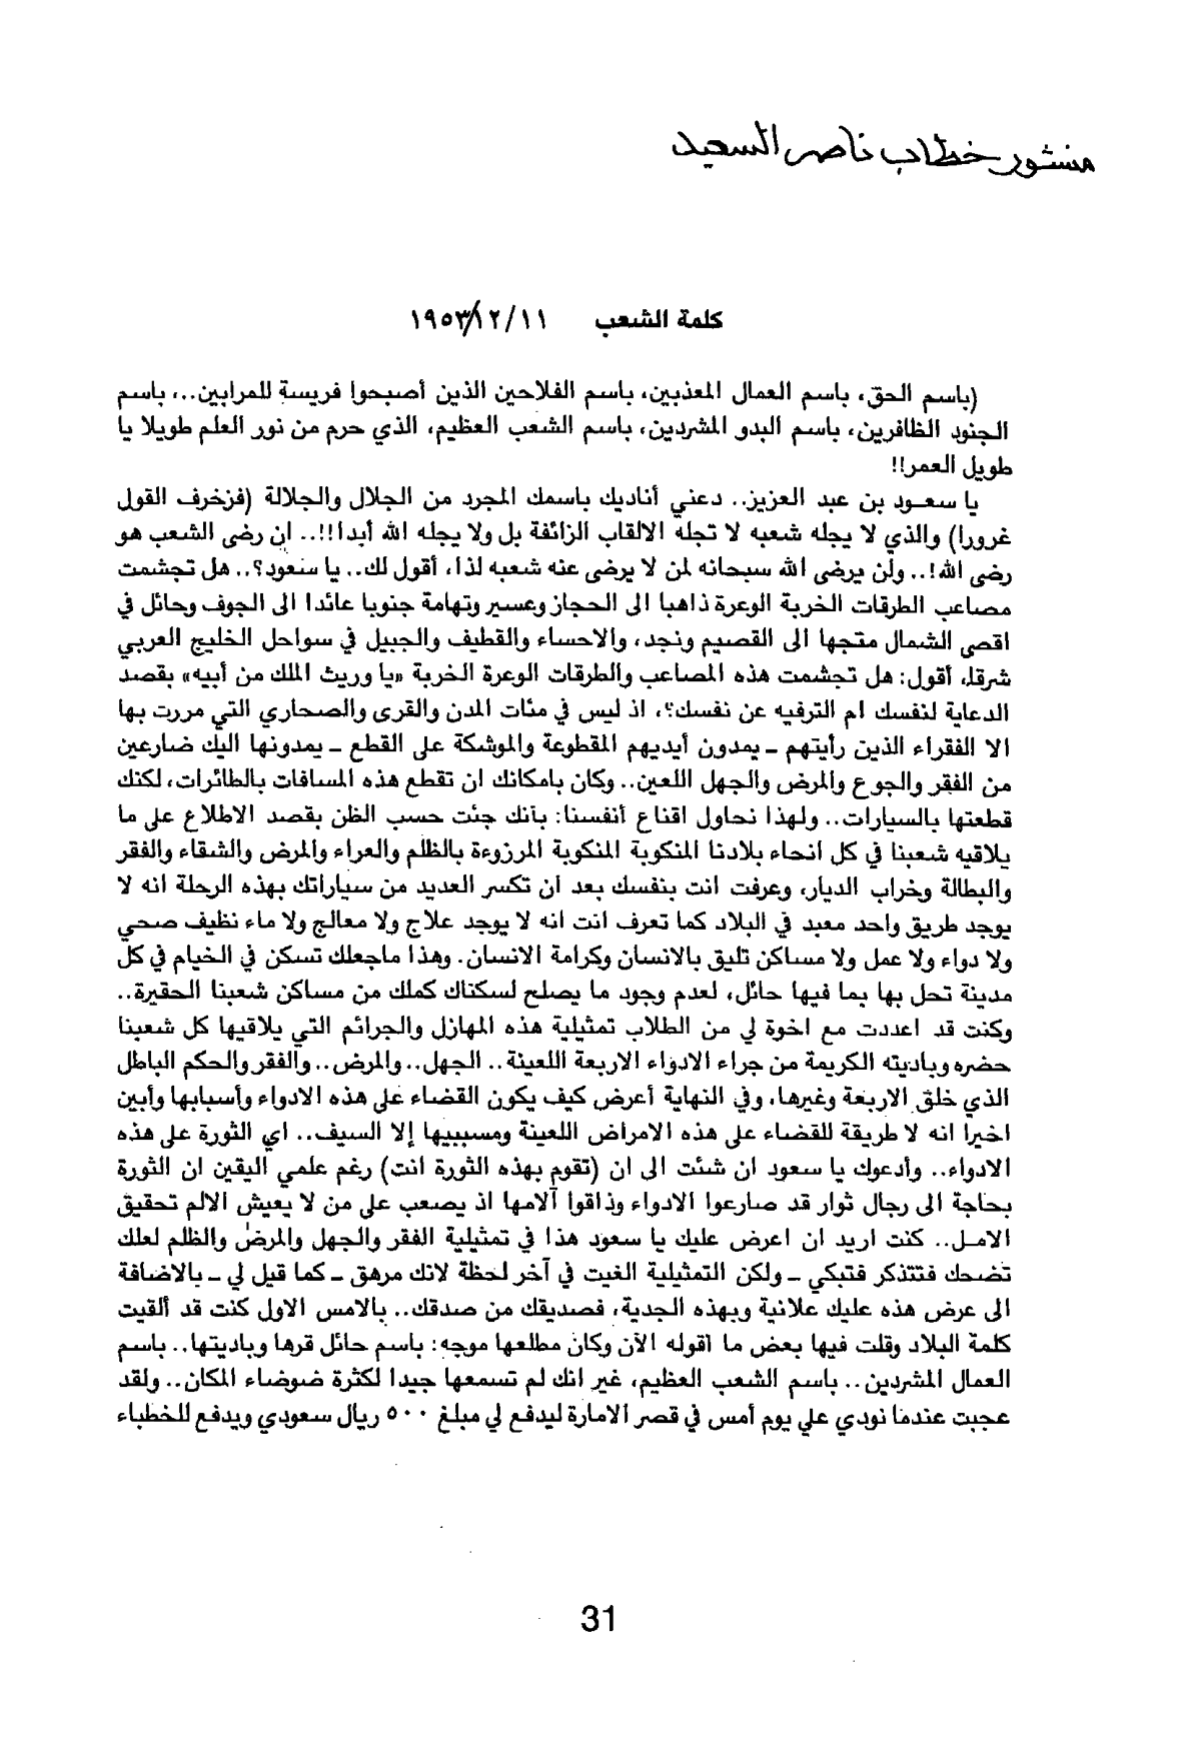 منشور خطاب ناصر السعيد
كلمة الشعب ١٩٥٣/١٢/١١
(باسم الحق، باسم العمال المعذبين، باسم الفلاحين الذين أصبحوا فريسة للمرابين..، باسم
الجنود الظافرين، باسم البدو المشردين، باسم الشعب العظيم، الذي حرم من نور العلم طويلا يا
طويل العمر!!
يا سعود بن عبد العزيز.. دعني أناديك باسمك المجرد من الجلال والجلالة (فزخرف القول
غرورا) والذي لا يجله شعبه لا تجله الالقاب الزائفة بل ولا يجله الله أبدا!!.. ان رضى الشعب هو
رضى الله!.. ولن يرضى الله سبحانه لمن لا يرضى عنه شعبه لذا، أقول لك.. يا سعود؟.. هل تجشمت
مصاعب الطرقات الخربة الوعرة ذاهبا الى الحجاز وعسير وتهامة جنوبا عائدا الى الجوف وحائل في
اقصى الشمال متجها الى القصيم ونجد، والاحساء والقطيف والجبيل في سواحل الخليج العربي
شرقا، أقول: هل تجشمت هذه المصاعب والطرقات الوعرة الخربة «يا وريث الملك من أبيه» بقصد
الدعاية لنفسك ام الترفيه عن نفسك؟، اذ ليس في مئات المدن والقرى والصحاري التي مررت بها
الا الفقراء الذين رأيتهم ـ يمدون أيديهم المقطوعة والموشكة على القطع ـ يمدونها اليك ضارعين
من الفقر والجوع والمرض والجهل اللعين.. وكان بامكانك ان تقطع هذه المسافات بالطائرات، لكنك
قطعتها بالسيارات.. ولهذا نحاول اقناع أنفسنا: بأنك جئت حسب الظن بقصد الاطلاع على ما
يلاقيه شعبنا في كل انحاء بلادنا المنكوبة المنكوبة المرزوءة بالظلم والعراء والمرض والشقاء والفقر
والبطالة وخراب الديار، وعرفت انت بنفسك بعد ان تكسر العديد من سياراتك بهذه الرحلة انه لا
يوجد طريق واحد معبد في البلاد كما تعرف انت انه لا يوجد علاج ولا معالج ولا ماء نظيف صحي
ولا دواء ولا عمل ولا مساكن تليق بالانسان وكرامة الانسان. وهذا ماجعلك تسكن في الخيام في كل
مدينة تحل بها بما فيها حائل، لعدم وجود ما يصلح لسكناك كملك من مساكن شعبنا الحقيرة..
وكنت قد اعددت مع اخوة لي من الطلاب تمثيلية هذه المهازل والجرائم التي يلاقيها كل شعبنا
حضره وباديته الكريمة من جراء الادواء الاربعة اللعينة.. الجهل.. والمرض.. والفقر والحكم الباطل
الذي خلق الاربعة وغيرها، وفي النهاية أعرض كيف يكون القضاء على هذه الادواء وأسبابها وأبين
اخيرا انه لا طريقة للقضاء على هذه الامراض اللعينة ومسببيها إلا السيف.. اي الثورة على هذه
الادواء.. وأدعوك يا سعود ان شئت الى ان (تقوم بهذه الثورة انت) رغم علمي اليقين ان الثورة
بحاجة الى رجال ثوار قد صارعوا الادواء وذاقوا آلامها اذ يصعب على من لا يعيش الالم تحقيق
الامل.. كنت اريد ان اعرض عليك يا سعود هذا في تمثيلية الفقر والجهل والمرض والظلم لعلك
تضحك فتتذكر فتبكي ـ ولكن التمثيلية الغيت في آخر لحظة لانك مرهق ـ كما قيل لي ـ بالاضافة
الى عرض هذه عليك علانية وبهذه الجدية، فصديقك من صدقك.. بالامس الاول كنت قد ألقيت
كلمة البلاد وقلت فيها بعض ما اقوله الآن وكان مطلعها موجه: باسم حائل قرها وباديتها.. باسم
العمال المشردين.. باسم الشعب العظيم، غير انك لم تسمعها جيدا لكثرة ضوضاء المكان.. ولقد
عجبت عندما نودي علي يوم أمس في قصر الامارة ليدفع لي مبلغ ٥٠٠ ريال سعودي ويدفع للخطباء
31